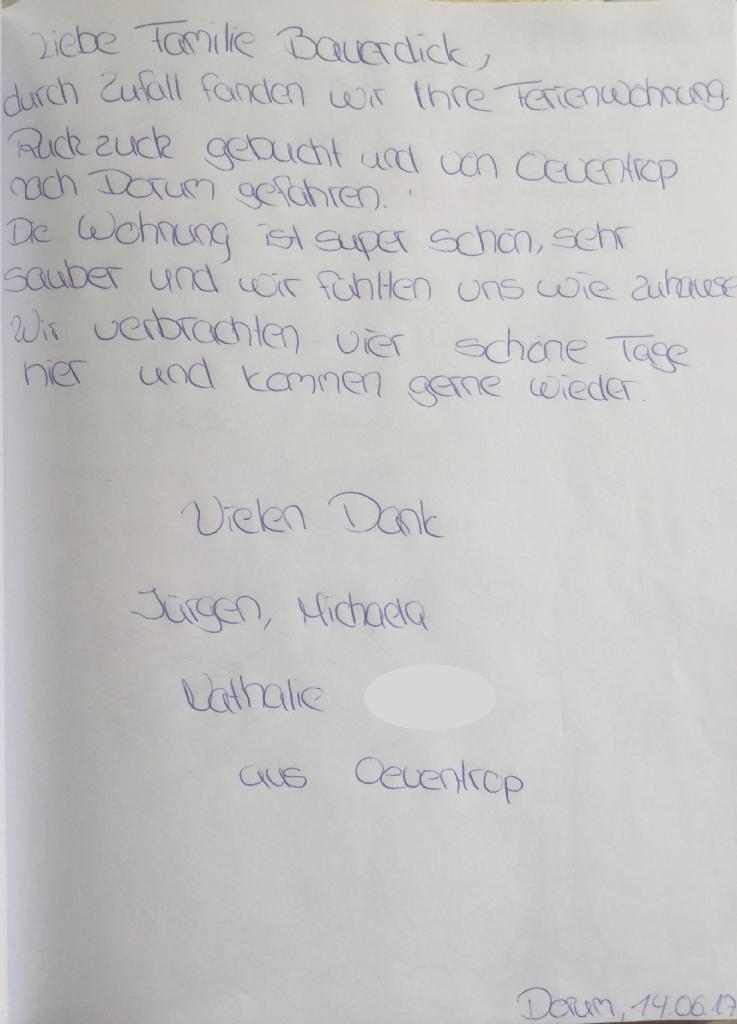 Liebe Familie Bauerdick,
durch Zufall fanden wir Ihre Ferienwohnung.
Ruck zuck gebucht und von Oeventrop
nach Dorum gefahren.
Die Wohnung ist super schön, sehr
sauber und wir fühlten uns wie zuhause
Wir verbrachten vier schöne Tage
hier und kommen gerne wieder.
Vielen Dank
Jürgen, Michaela
Nathalie
aus Oeventrop
Dorum, 14.06.17